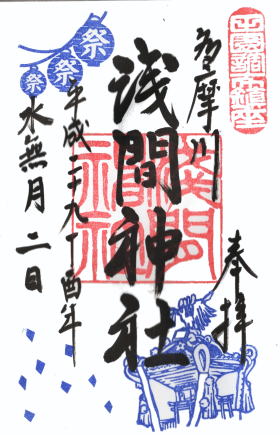 田園調布鎮座
奉拝
多摩川
浅間神社
浅間
神社
平成二十九丁酉年
水無月二日
祭
祭
祭